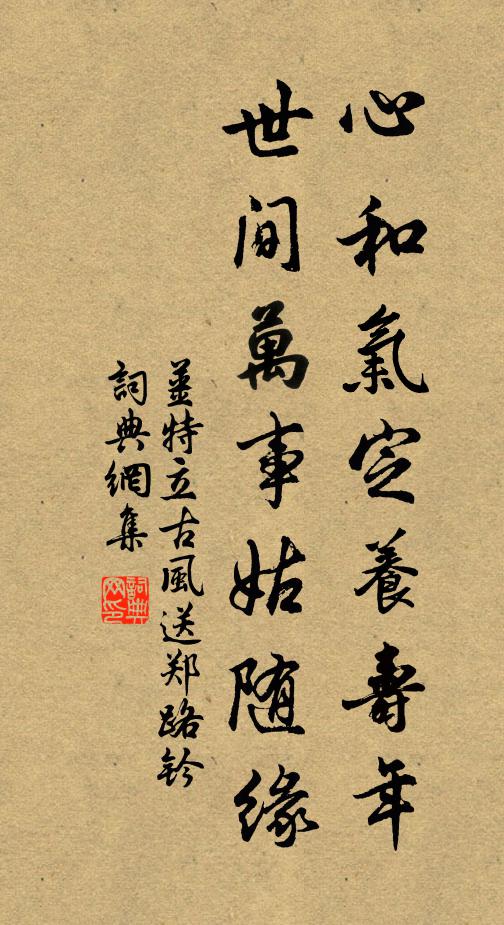 心和氣定養壽年
世间萬事姑随緣
姜特立古風送郑路钤
詞典網集
詞典網印